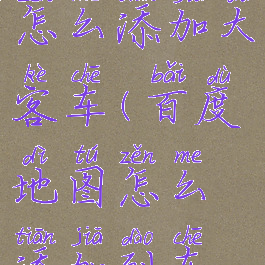 怎么添加大
kè chē bǎi dù
客车(百度
dì tú zěn me
地图怎么
tiān jiā dào chē
添加到车